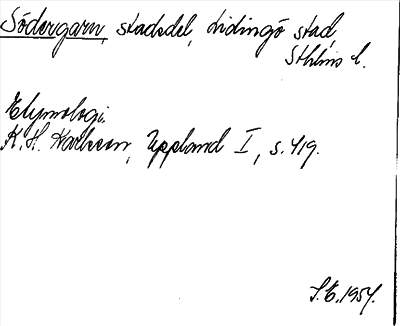 Södergarn, stadsdel, Lidingö stad,
Sthlms l.
Etymologi.
K. H. Karlsson, Uppland I, s. 419.
S.E. 1954.